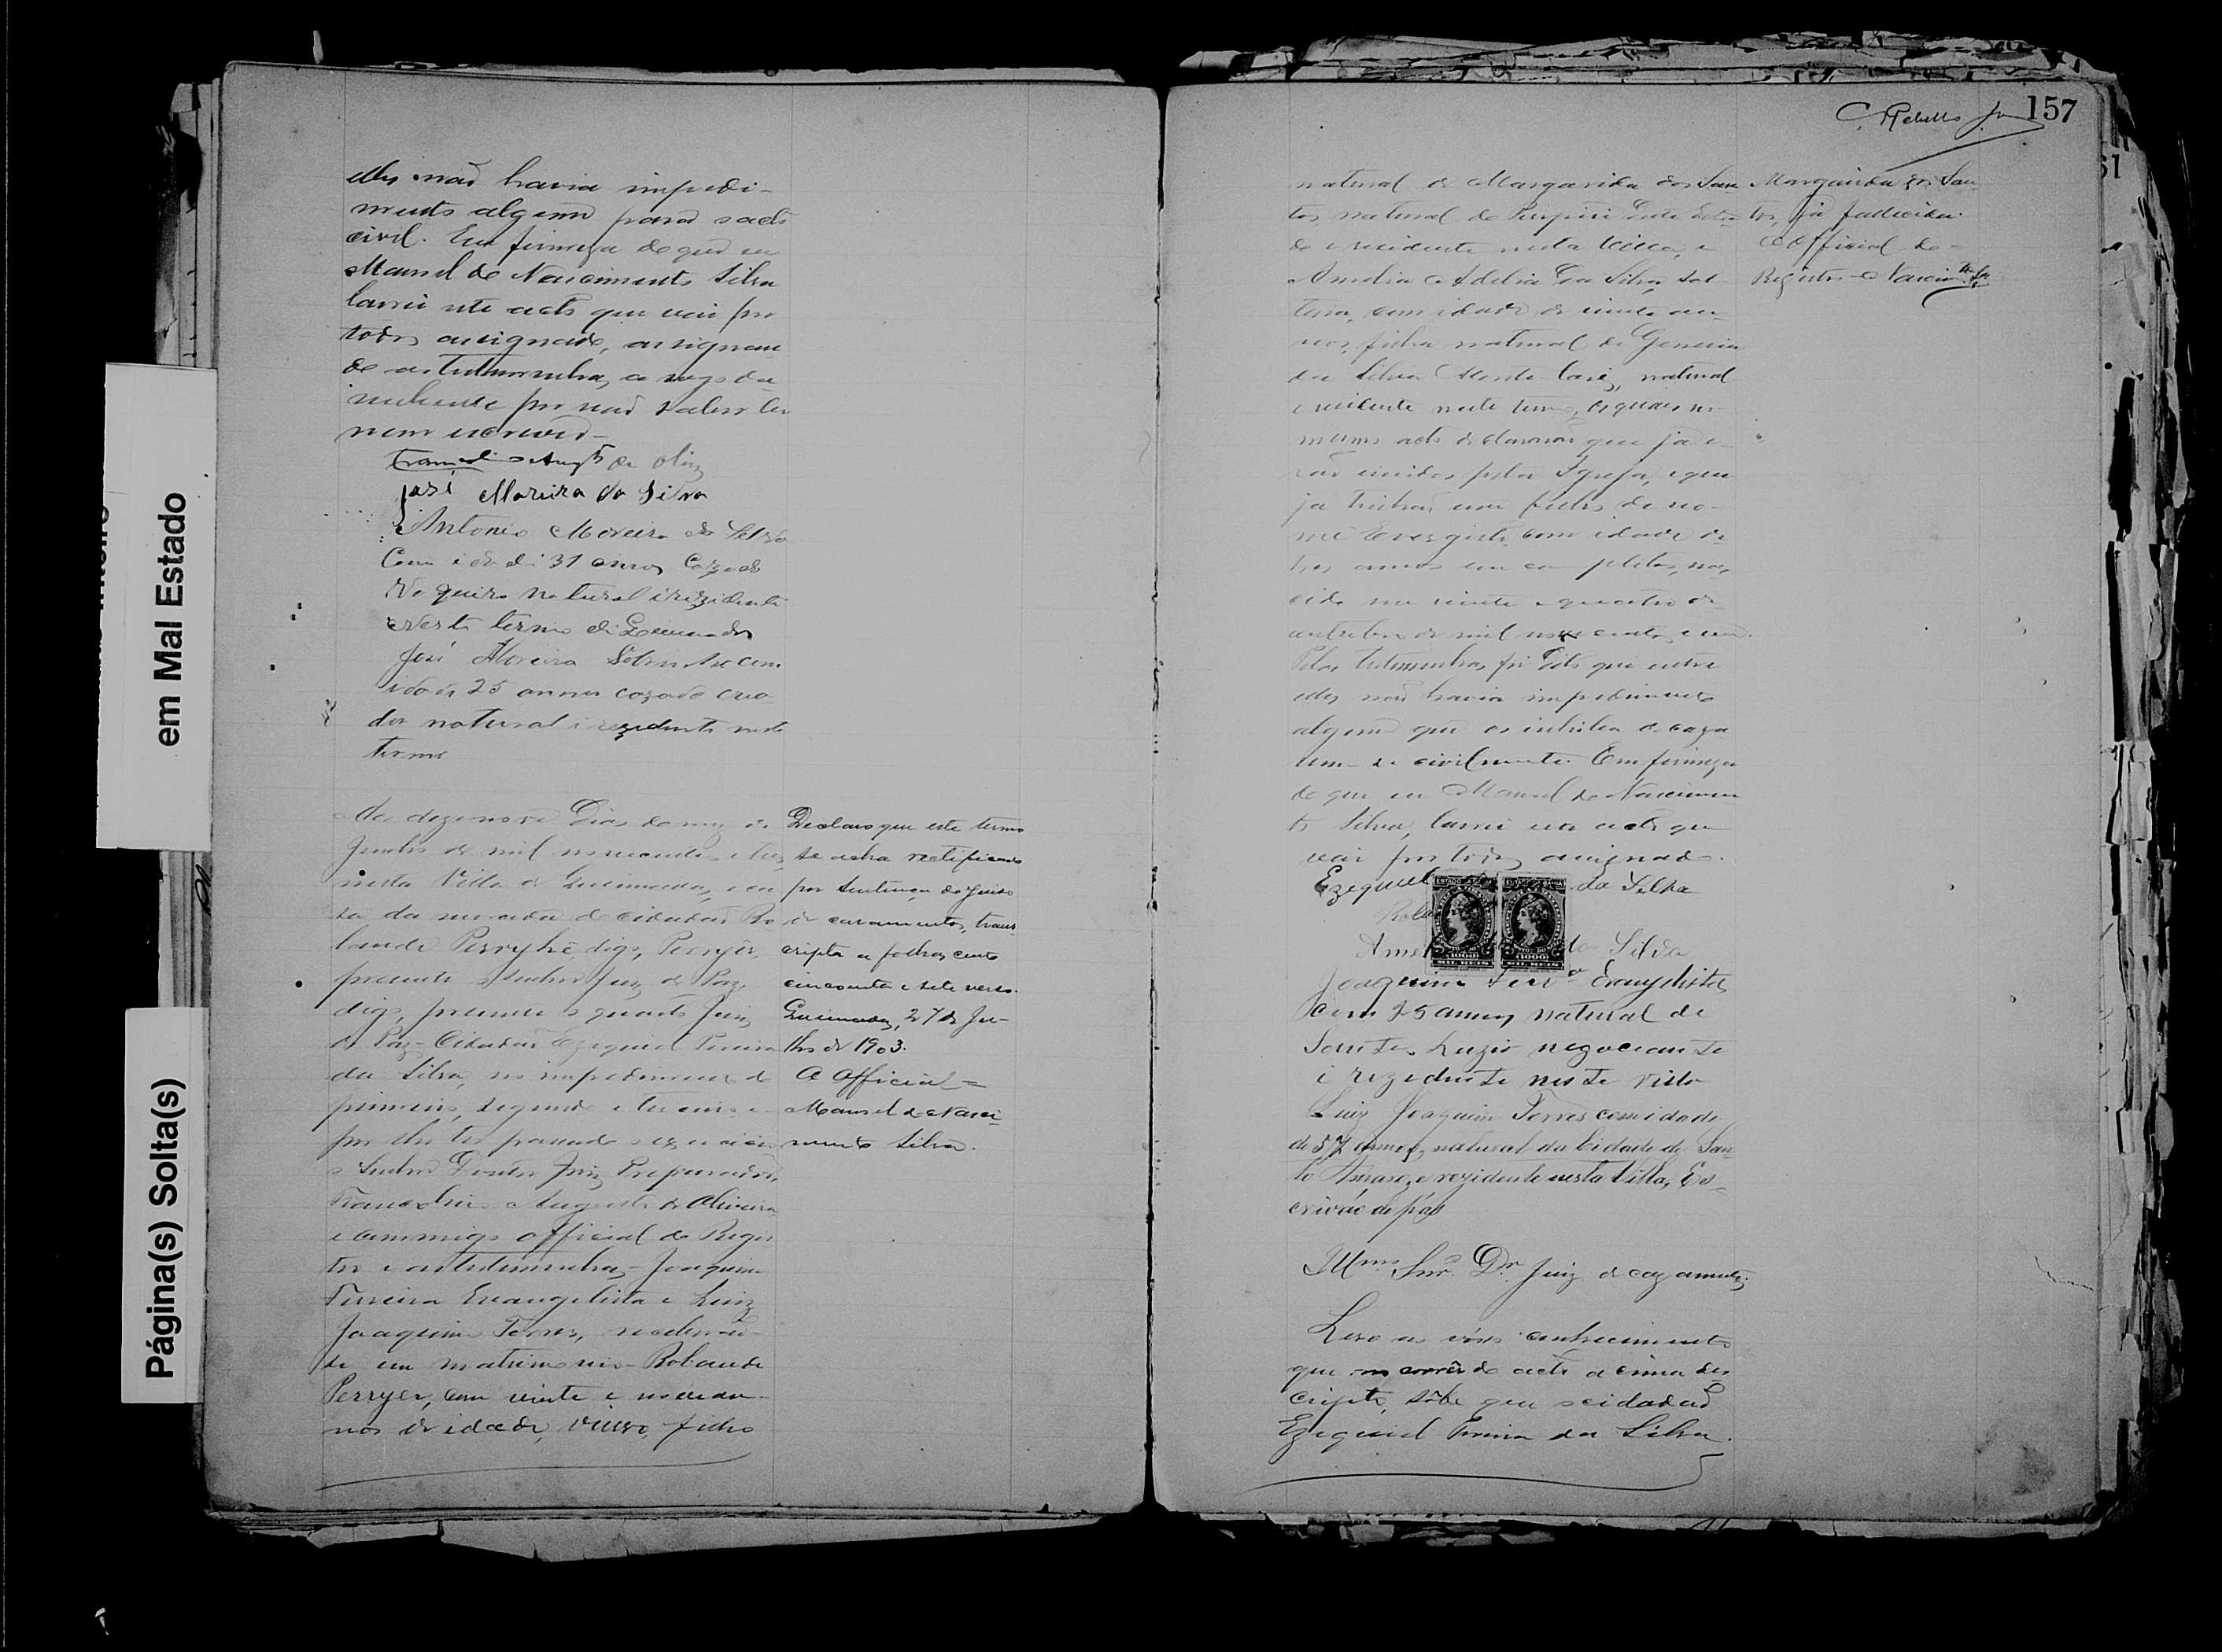 elles não havia impedi-
mento algum para o acto
civil. Em firmeza do que eu
Manoel do Nascimento Silva
lavrei este acto que vai por
todos assignado, assignan
do as testemunhas, a rogo da
nubente por não saber ler
nem escrever-
Augto de Olivª
José Moreira da Silva
Antonio Moreira da Silva
Com idade di 31 annos Cazado
Vaqueiro natural i rezidente
nesti termo di Queimados
José Moreira Sobrinho com
idade 25 annos cazado cria
dor natural i rezidente neste
termo
Aos dezenove dias do mez de
Junho de mil novecentos e tres
nesta Villa de Queimadas, e ca
sa da morada do cidadão Ro
lando Perryhê digo, Perryer,
presente o Senhor Juiz de Paz,
digo, presente o quarto Juiz
de Paz - Cidadão Ezequiel Pereira
da Silva, no impedimento do
primeiro, segundo e terceiro e
por elle ter passado o exercicio
o Senhor Doutor Juiz Preparador,
Francelino Augusto de Oliveira
e commigo official do Regis
tro e as testemunhas - Joaquim
Ferreira Evangelista e Luiz
Joaquim Torres, receberão-
se em matrimonio - Rolando
Perryer, com vinte e nove an-
nos de idade, viuvo, filho
Declaro que este termo
se acha rectificado
por sentença do Juizo
de casamentos, trans-
cripta a folhas cento
cincoenta e sete verso.
Queimadas, 27 de Ju-
lho de 1903.
O Official =
Manoel do Nasci-
mento Silva.
C. Rebello Jor 157
natural de Margarida dos San
tos, natural de deste Esta-
do e residente nesta Villa, e
Amelia Adelia da Silva, sol
teira, com idade de vinte an-
nos, filha natural de
da Silva natural
e residente neste termo, os quaes no
mesmo acto declararão que já e-
rão unidos pela Igreja, e que
já tinhão um filho de no-
me Evergisto, com idade de
tres annos completos, nas
cido em vinte e quatro de
outubro de mil novecentos e um.
Pelas testemunhas foi dito que entre
elles não havia impedimento
algum que os inhiba de caza
rem-se civilmente. Em firmeza
do que eu Manoel do Nascimen
to Silva, lavrei este acto que
vai por todos assignado.
Ezequiel da Silva
da Silva
Joaquim Ferrª Evangelista
com 25 annos natural de
Santa Luzia negociante
i rezidente nesta villa
Luiz Joaquim Torres com idade
de 57 annos, natural da Cidade de San
to Amaro, e rezidente nesta Villa, Es-
crivão de paz
Illmo Snr. Dr. Juiz de cazamentos.
Levo ao vosso conhecimento
que no correr do acto acima des
cripto, sôbe que o cidadão
Ezequiel Pereira da Silva.
Margarida dos San
tos, já fallecida.
O Official do
Registro - Nascimto Sa
em Mal Estado
Página(s) Solta(s)